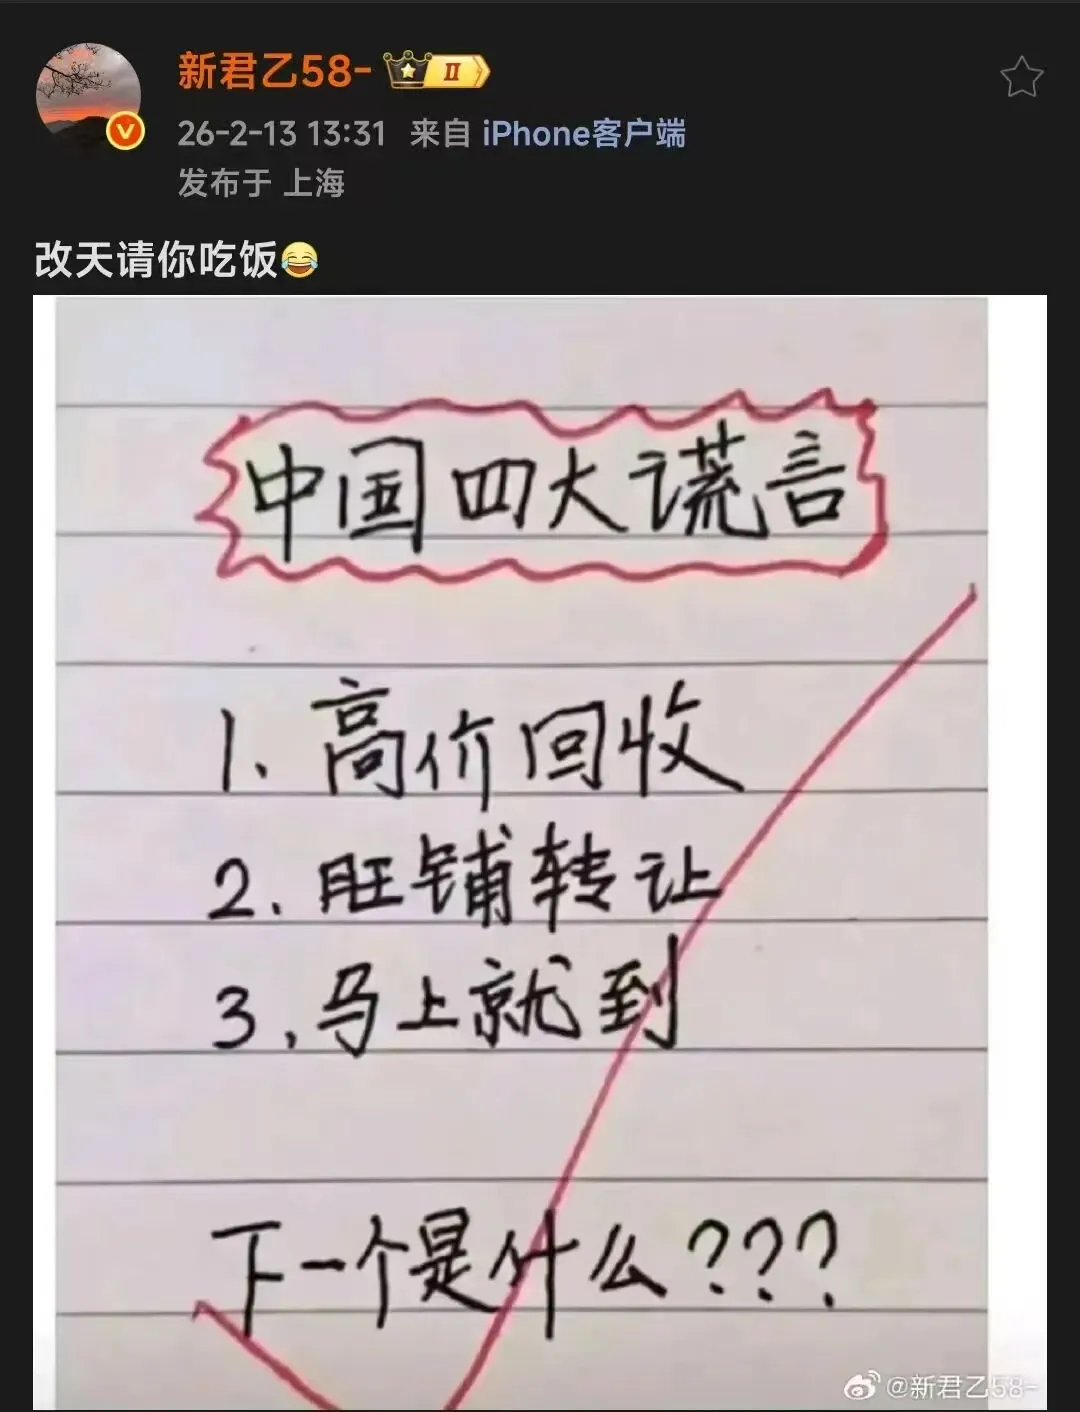 新君乙58-
II
26-2-13 13:31 来自 iPhone客户端
发布于 上海
改天请你吃饭😂
中国四大谎言
1、高价回收
2.旺铺转让
3.马上就到
下一个是什么???
@新君乙58-